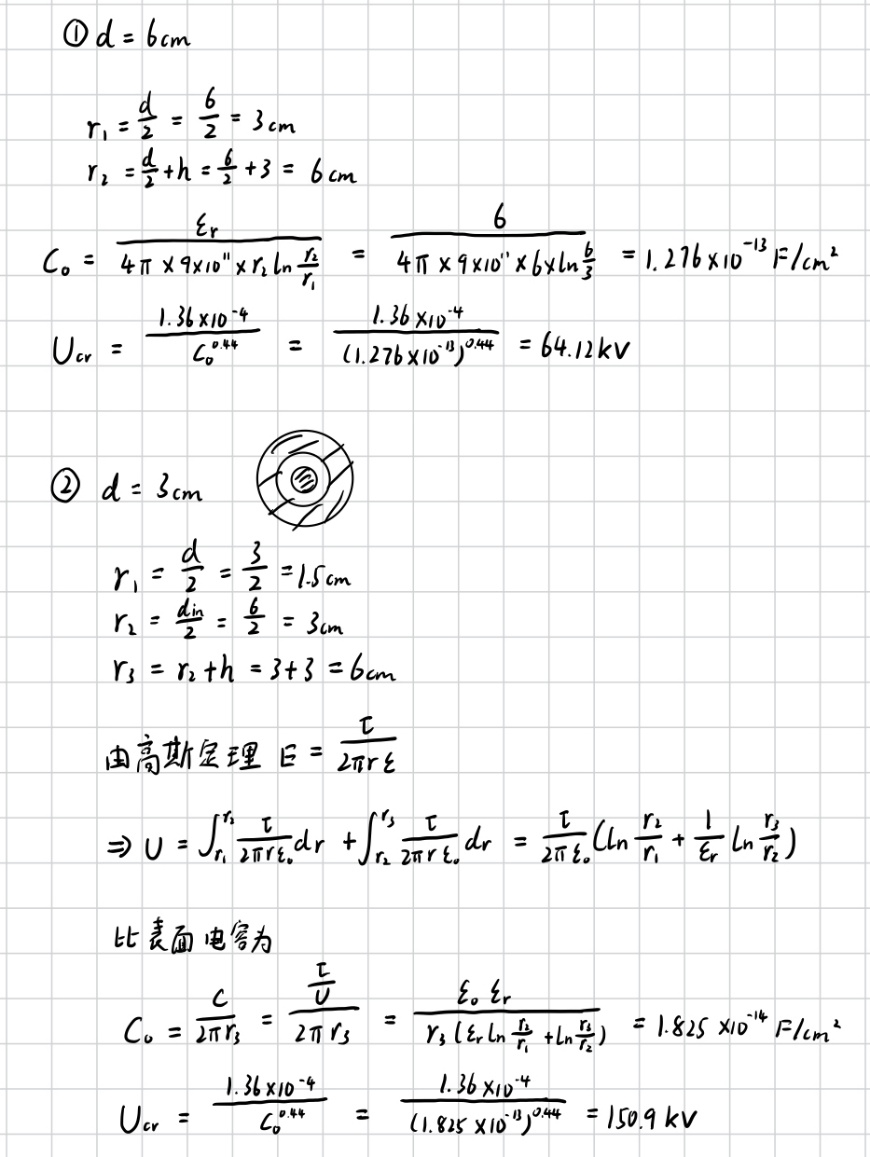 ① d = 6cm
r₁ = d/2 = 6/2 = 3cm
r₂ = d/2 + h = 6/2 + 3 = 6cm
C₀ = εr/(4π × 9×10¹¹ × r₂ ln r₂/r₁) = 6/(4π × 9×10¹¹ × 6 × ln 6/3) = 1.276×10⁻¹³ F/cm²
Ucr = 1.36×10⁻⁴/C₀^0.44 = 1.36×10⁻⁴/(1.276×10⁻¹³)^0.44 = 64.12kV
② d = 3cm
r₁ = d/2 = 3/2 = 1.5cm
r₂ = din/2 = 6/2 = 3cm
r₃ = r₂ + h = 3+3 = 6cm
由高斯定理 E = τ/(2πrε)
⇒ U = ∫_{r₁}^{r₂} τ/(2πrε₀) dr + ∫_{r₂}^{r₃} τ/(2πrε₀) dr = τ/(2πε₀) (ln r₂/r₁ + 1/εr ln r₃/r₂)
比表面电容为
C₀ = C/(2πr₃) = (τ/U)/(2πr₃) = ε₀εr/(r₃(εr ln r₂/r₁ + ln r₃/r₂)) = 1.825×10⁻¹⁴ F/cm²
Ucr = 1.36×10⁻⁴/C₀^0.44 = 1.36×10⁻⁴/(1.825×10⁻¹³)^0.44 = 150.9kV